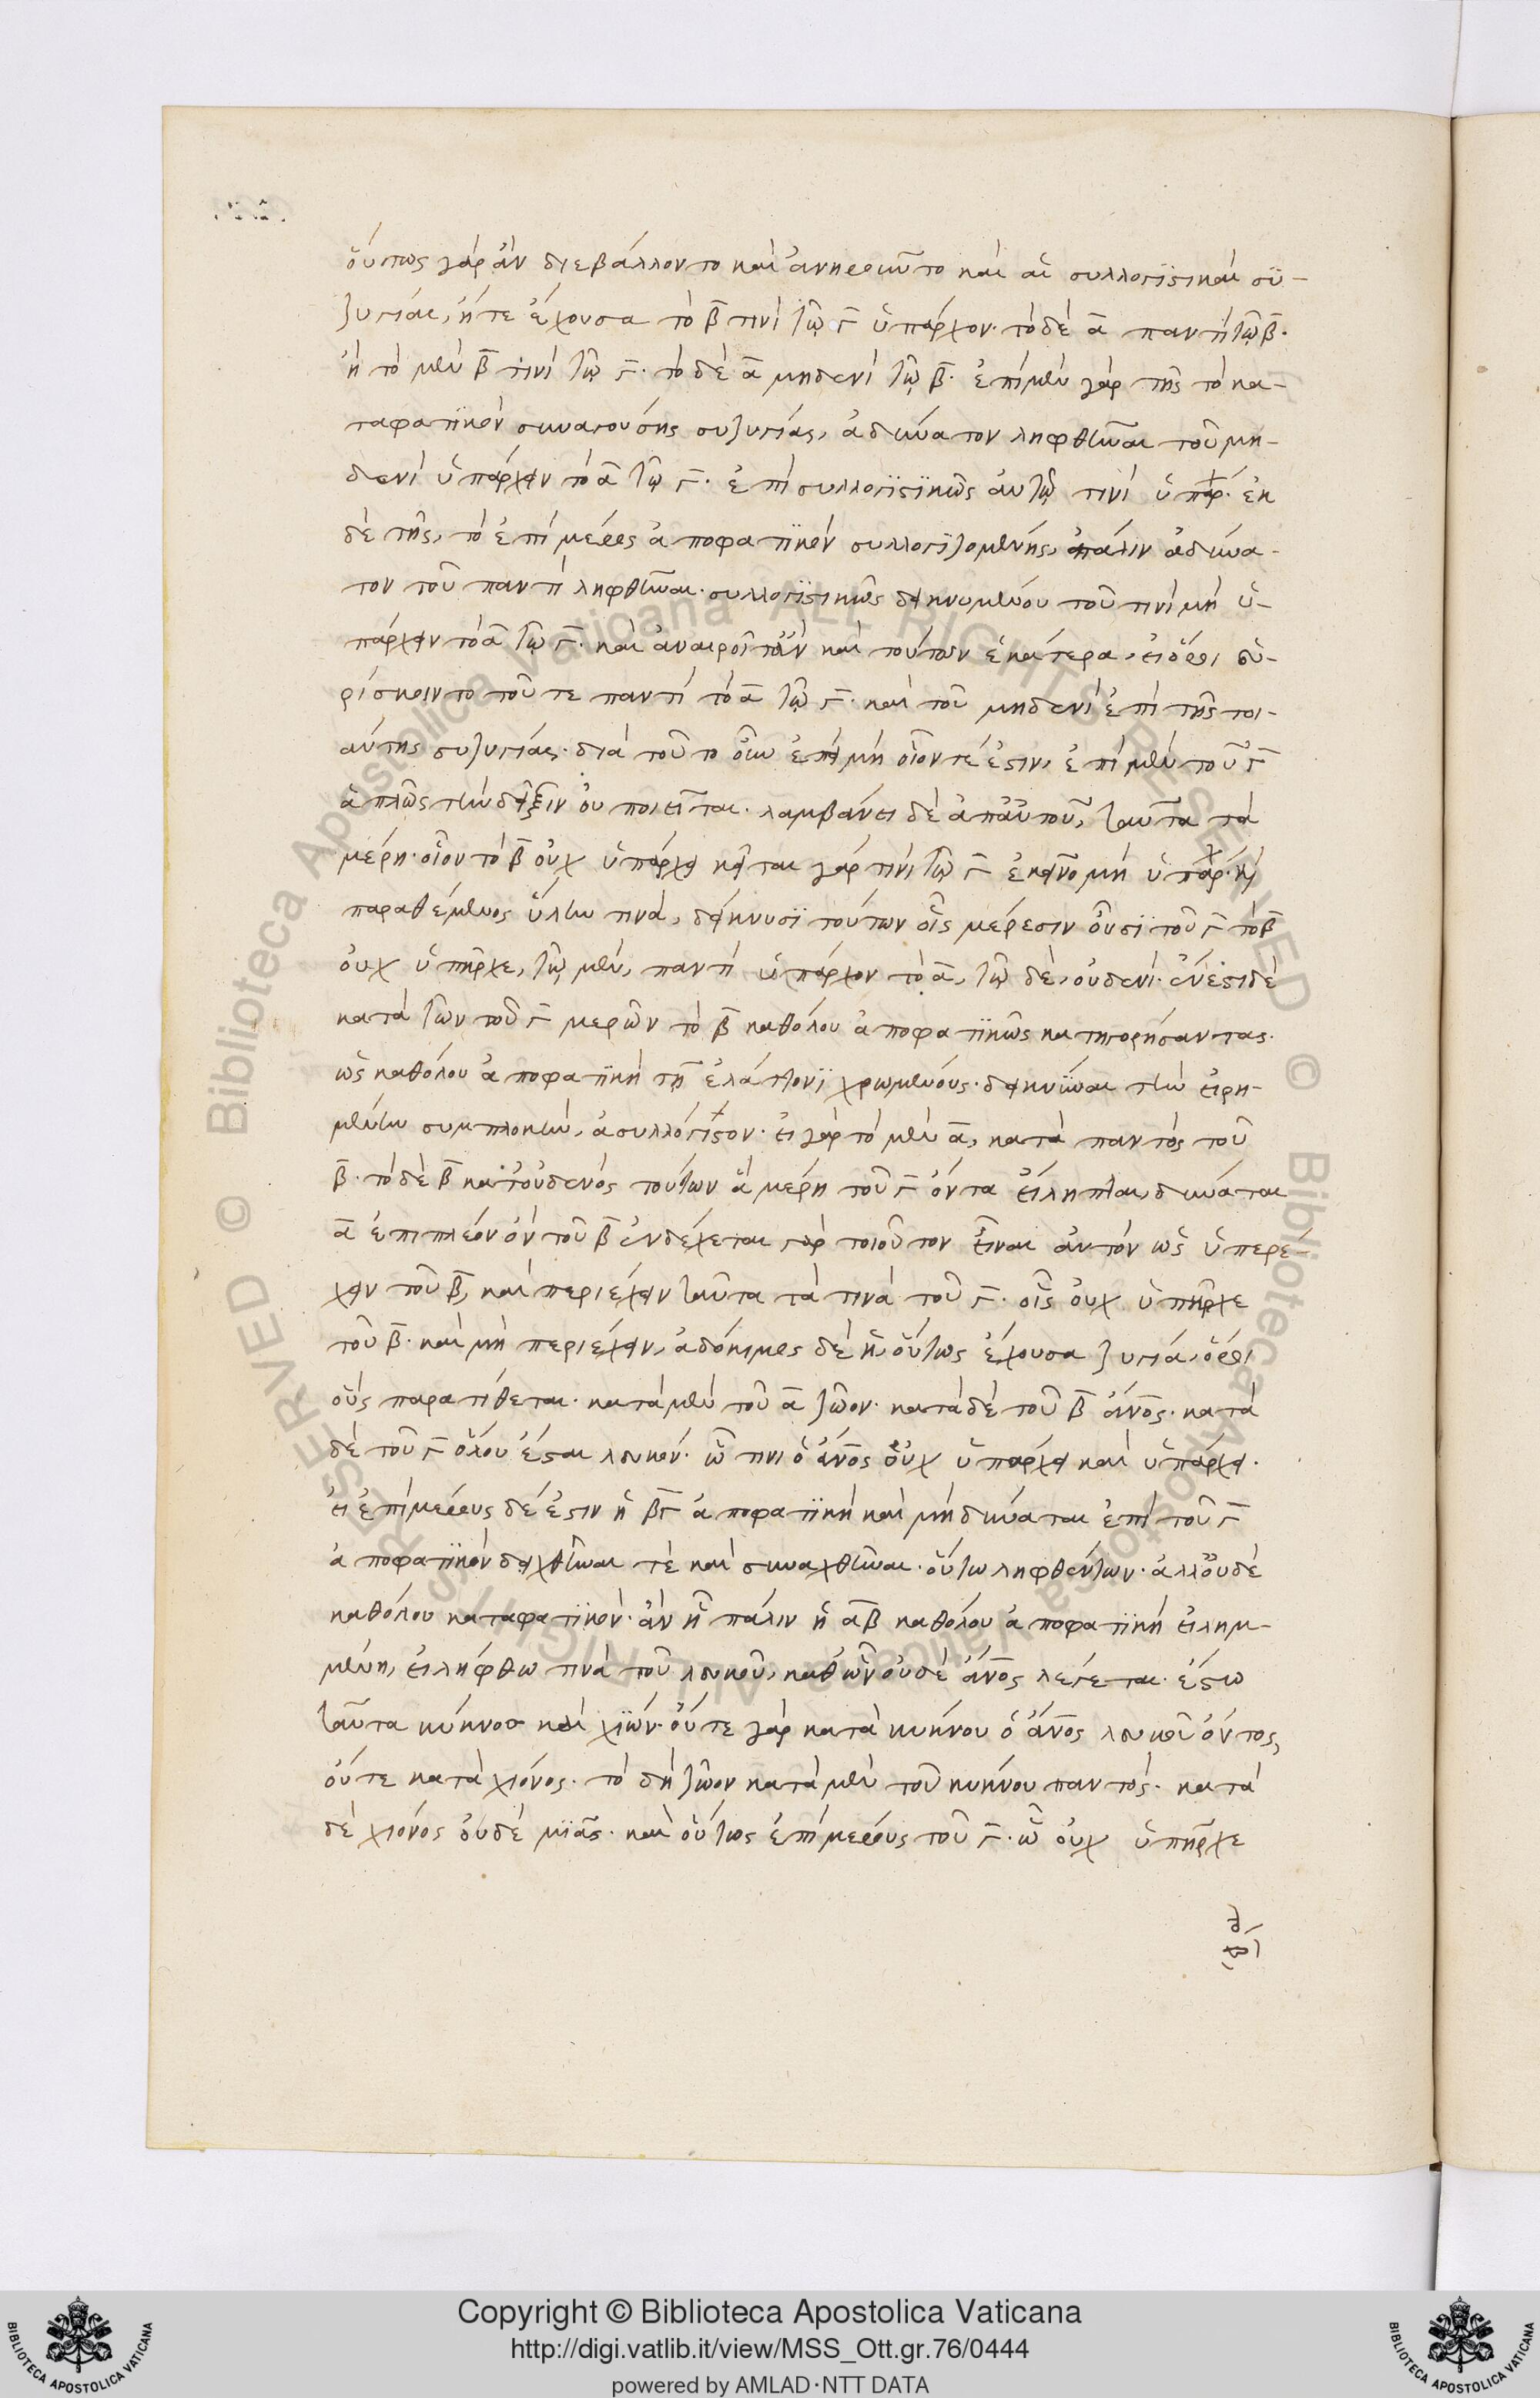 οὕτως γὰρ ἂν διεβάλλοντο καὶ ἀνῃροῦντο καὶ αἱ συλλογϊστικαὶ συ-
ζυγίαι, ἥτε ἔχουσα τὸ β̅ τινὶ τῷ γ̅ ὑπάρχον· τὸ δὲ α̅ παντὶ τῷ β̅·
ἢ τὸ μὲν β̅ τινὶ τῷ γ̅· τὸ δὲ α̅ μηδενὶ τῷ β̅· ἐπὶ μὲν γὰρ τῆς τὸ κα-
ταφατϊκὸν συναγούσης συζυγίας, ἀδύνατον ληφθῆναι τοῦ μη-
δενὶ ὑπάρχειν τὸ α̅ τῷ γ̅· ἐπὶ συλλογϊστϊκῶς αὐτῷ τινὶ ὑπάρχ· ἐκ
δὲ τῆς, τὸ ἐπὶ μέρος ἀποφατϊκὸν συλλογϊζομένης, πάλιν ἀδύνα-
τον τοῦ παντὶ ληφθῆναι· συλλογϊστικῶς δεικνυμένου τοῦ τινὶ μὴ ὑ-
πάρχειν τὸ α̅ τῷ γ̅· καὶ ἀναιροῖτ' ἂν καὶ τούτων ἑκατέρα, εἰ ὅροι εὑ-
ρίσκοιντο τοῦ τε παντὶ τὸ α̅ τῷ γ̅· καὶ τοῦ μηδενὶ ἐπὶ τῆς τοι-
αύτης συζυγίας· διὰ τοῦτο οὖν ἐπεὶ μὴ οἷόν τέ ἐστιν, ἐπὶ μὲν τοῦ γ̅
ἁπλῶς τὴν δεῖξιν οὐ ποιεῖται· λαμβάνει δὲ ἀπ' αὐτοῦ, ταῦτα τὰ
μέρη· οἷον τὸ β̅ οὐχ ὑπάρχει κεῖται γὰρ τινὶ τῷ γ̅ ἐκεῖνο μὴ ὑπάρχ· κ(αὶ)
παραθέμενος ὕλην τινὰ, δείκνυσϊ τούτων οἷς μέρεσιν οὖσϊ τοῦ γ̅ τὸ β̅
οὐχ ὑπῆρχε, τῷ μὲν, παντὶ ὑπάρχον τὸ α̅, τῷ δὲ, οὐδενὶ· ἔνεστι δὲ
κατὰ τῶν τοῦ γ̅ μερῶν τὸ β̅ καθόλου ἀποφατϊκῶς κατηγορήσαντας·
ὡς καθόλου ἀποφατϊκῇ τῇ ἐλάττονϊ χρωμένους· δεικνῦναι τὴν εἰρη-
μένην συμπλοκὴν, ἀσυλλόγϊστον· εἰ γὰρ τὸ μὲν α̅, κατὰ παντὸς τοῦ
β̅· τὸ δὲ β̅ κατ' οὐδενὸς τούτων ἃ μέρη τοῦ γ̅ ὄντα εἴληπται, δύναται
α̅ ἐπιπλέον ὂν τοῦ β̅ ἐνδέχεται γὰρ τοιοῦτον εἶναι αὐτὸν ὡς ὑπερέ-
χειν τοῦ β̅, καὶ περιέχειν ταῦτα τὰ τινὰ τοῦ γ̅· οἷς οὐχ ὑπῆρχε
τοῦ β̅· καὶ μὴ περιέχειν, ἀδόκιμος δὲ ἡ οὕτως ἔχουσα ζυγία, ὅροι
οὓς παρατίθεται· κατὰ μὲν τοῦ α̅ ζῷον· κατὰ δὲ τοῦ β̅ ἄνος· κατὰ
δὲ τοῦ γ̅ ὅλου ἔσται λευκόν· ᾧ τινι ὁ ἄνος οὐχ ὑπάρχει καὶ ὑπάρχει·
εἰ ἐπὶ μέρους δέ ἐστιν ἡ β̅γ̅ ἀποφατϊκὴ καὶ μὴ δύναται ἐπὶ τοῦ γ̅
ἀποφατϊκὸν δειχθῆναι τὲ καὶ συναχθῆναι· οὕτω ληφθέντων· ἀλλ' οὐδὲ
καθόλου καταφατϊκόν· ἂν ᾖ πάλιν ἡ α̅β̅ καθόλου ἀποφατϊκὴ εἰλημ-
μένη, εἰλήφθω τινὰ τοῦ λευκοῦ, καθ' ὧν οὐδὲ ἄνος λέγεται· ἔστω
ταῦτα κύκνος καὶ χϊών· οὔτε γὰρ κατὰ κύκνου ὁ ἄνος λευκοῦ ὄντος,
οὔτε κατὰ χιόνος· τὸ δὴ ζῷον κατὰ μὲν τοῦ κύκνου παντός· κατὰ
δὲ χιόνος οὐδὲ μϊᾶς· καὶ οὕτως ἐπὶ μέρους τοῦ γ̅· ᾧ οὐχ ὑπῆρχε
Copyright © Biblioteca Apostolica Vaticana
http://digi.vatlib.it/view/MSS_Ott.gr.76/0444
powered by AMLAD·NTT DATA